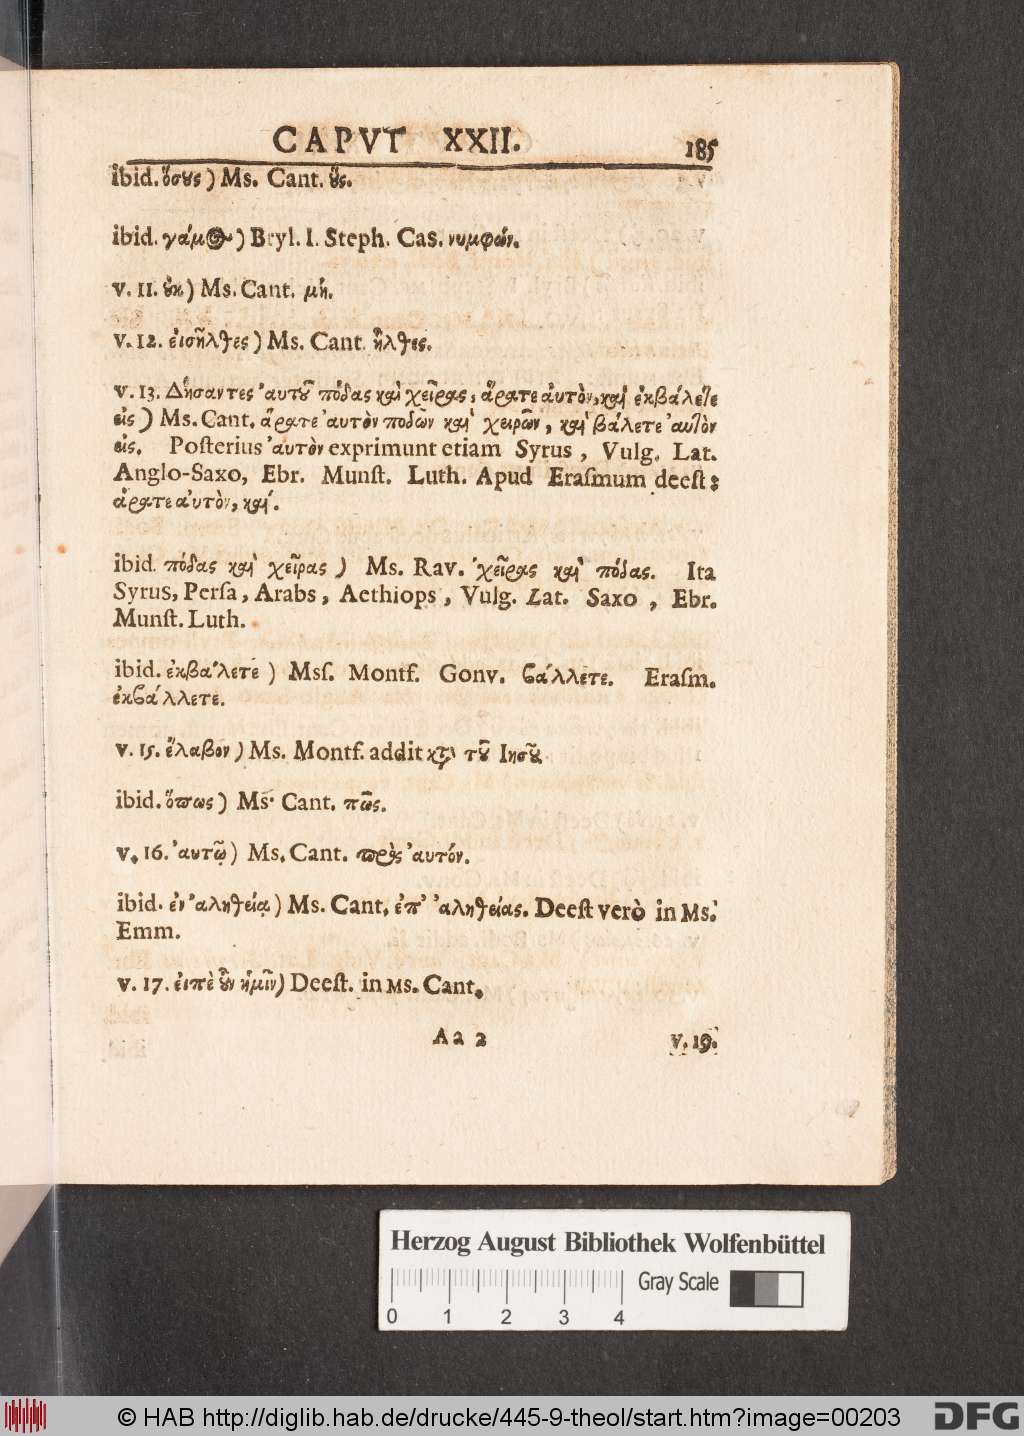 CAPVT XXII. 185
ibid. ὅσȣς) Ms. Cant. ȣ̔́ς.
ibid. γάμος) Bryl. I. Steph. Cas. νυμφών.
v. 11. ȣ̓κ) Ms. Cant. μή.
v. 12. ἐισῆλθες) Ms. Cant. ἦλθες.
v. 13. Δήσαντες ἀυτȣ͂ πόδας καὶ χεῖρας, ἄρατε ἀυτὸν, καὶ ἐκβάλετε
εἰς) Ms. Cant. ἄρατε ἀυτὸν ποδῶν καὶ χειρῶν, καὶ βάλετε ἀυτὸν
εἰς. Poſterius ἀυτὸν exprimunt etiam Syrus, Vulg. Lat.
Anglo-Saxo, Ebr. Munſt. Luth. Apud Eraſmum deeſt:
ἄρατε ἀυτὸν, καί.
ibid. πόδας καὶ χεῖρας) Ms. Rav. χεῖρας καὶ πόδας. Ita
Syrus, Perſa, Arabs, Aethiops, Vulg. Lat. Saxo, Ebr.
Munſt. Luth.
ibid. ἐκβάλετε) Msſ. Montf. Gonv. βάλλετε. Eraſm.
ἐκβάλλετε.
v. 15. ἔλαβον) Ms. Montf. addit κατὰ τȣ͂ Ιησȣ͂.
ibid. ὅπως) Ms. Cant. πῶς.
v. 16. ἀυτῷ) Ms. Cant. πρὸς ἀυτόν.
ibid. ἐν ἀληθείᾳ) Ms. Cant. ἐπ' ἀληθείας. Deeſt verò in Ms.
Emm.
v. 17. ἐιπὲ ȣ̓͂ν ἡμῖν) Deeſt. in Ms. Cant.
Aa 2 v. 19.
Herzog August Bibliothek Wolfenbüttel
Gray Scale
0 1 2 3 4
© HAB http://diglib.hab.de/drucke/445-9-theol/start.htm?image=00203
DFG